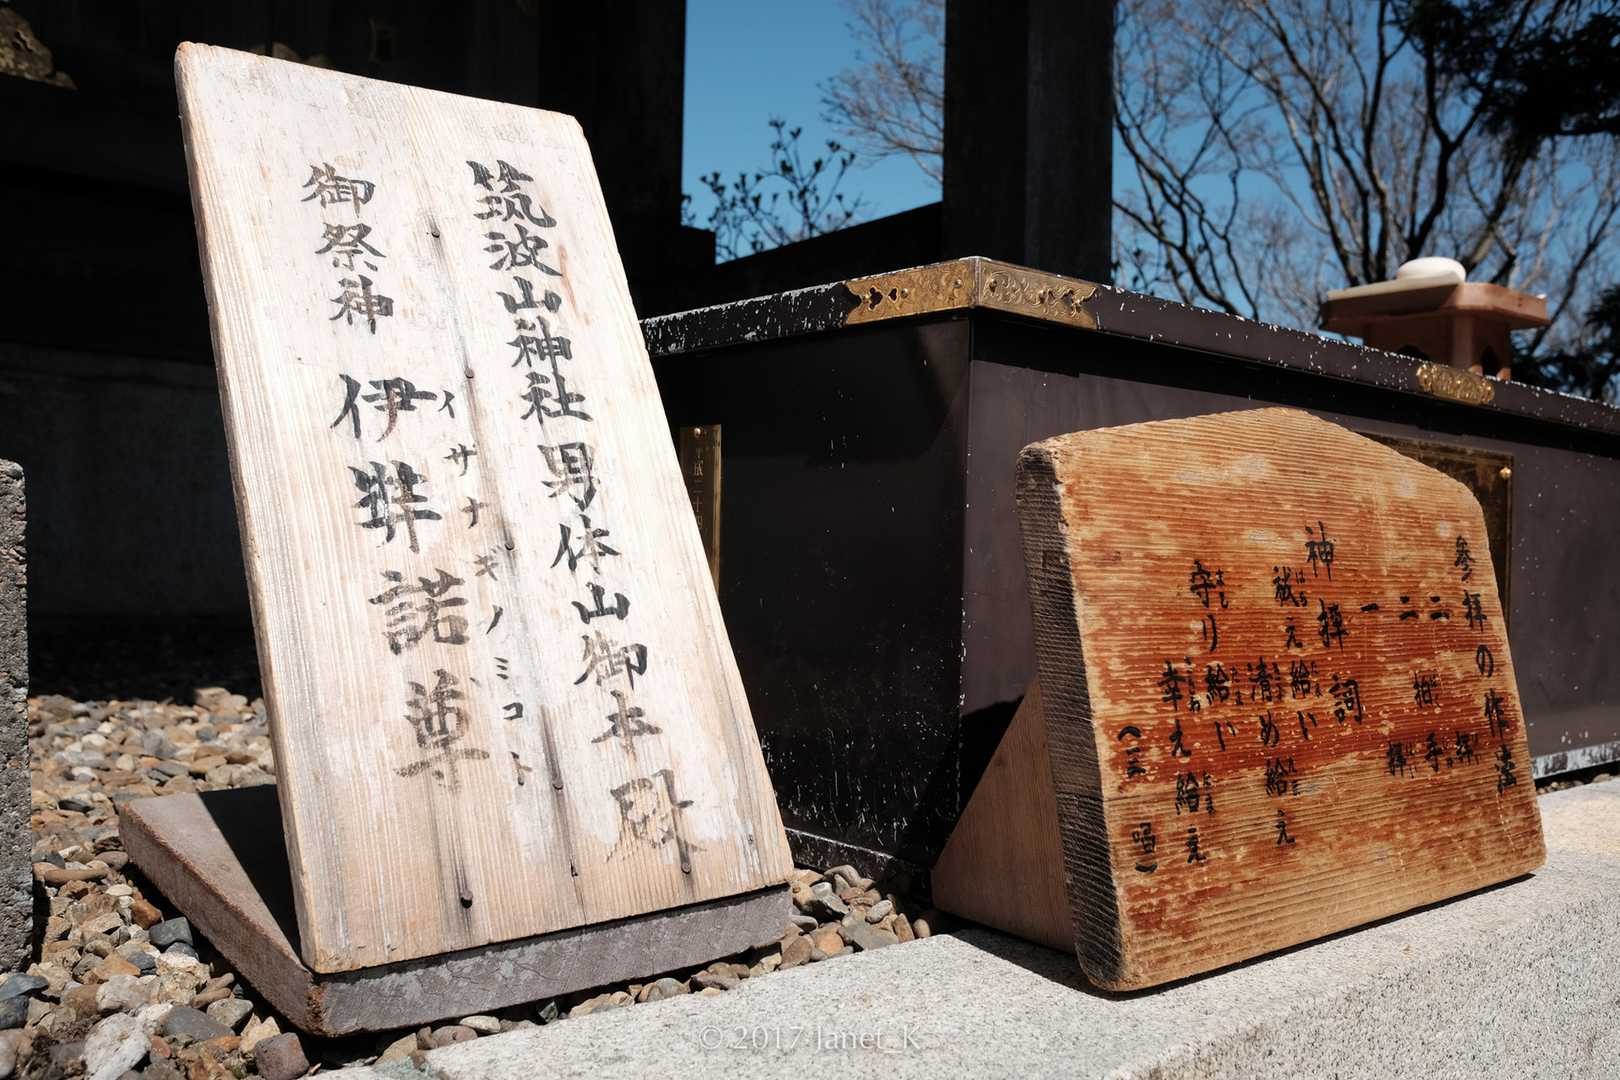 筑波山神社男体山御本殿
御祭神 伊弉諾尊
イサナギノミコト
参拝の作法
二拝
二拍手
一拝
神拝詞
祓え給い
清め給え
守り給い
幸え給え
(一唱)
平成二十
© 2017 Janet_K